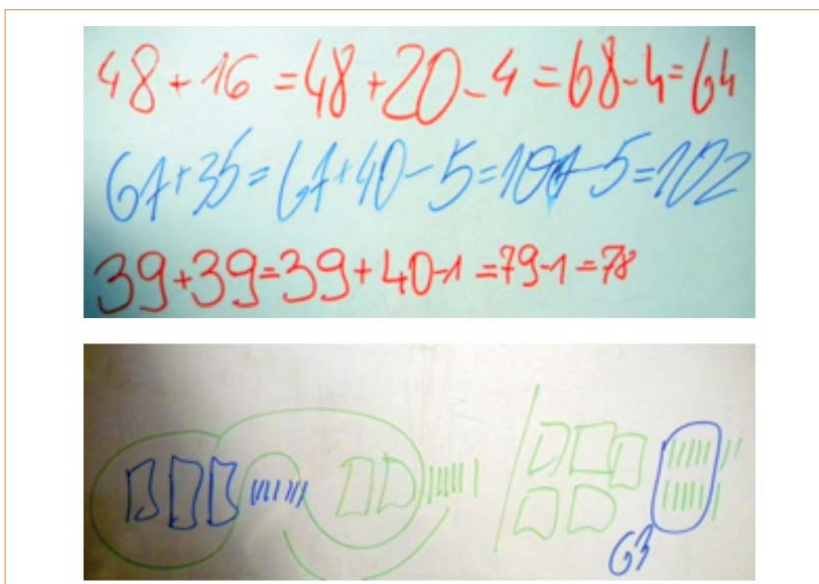 48+16=48+20-4=68-4=64
67+35=67+40-5=107-5=102
39+39=39+40-1=79-1=78
63